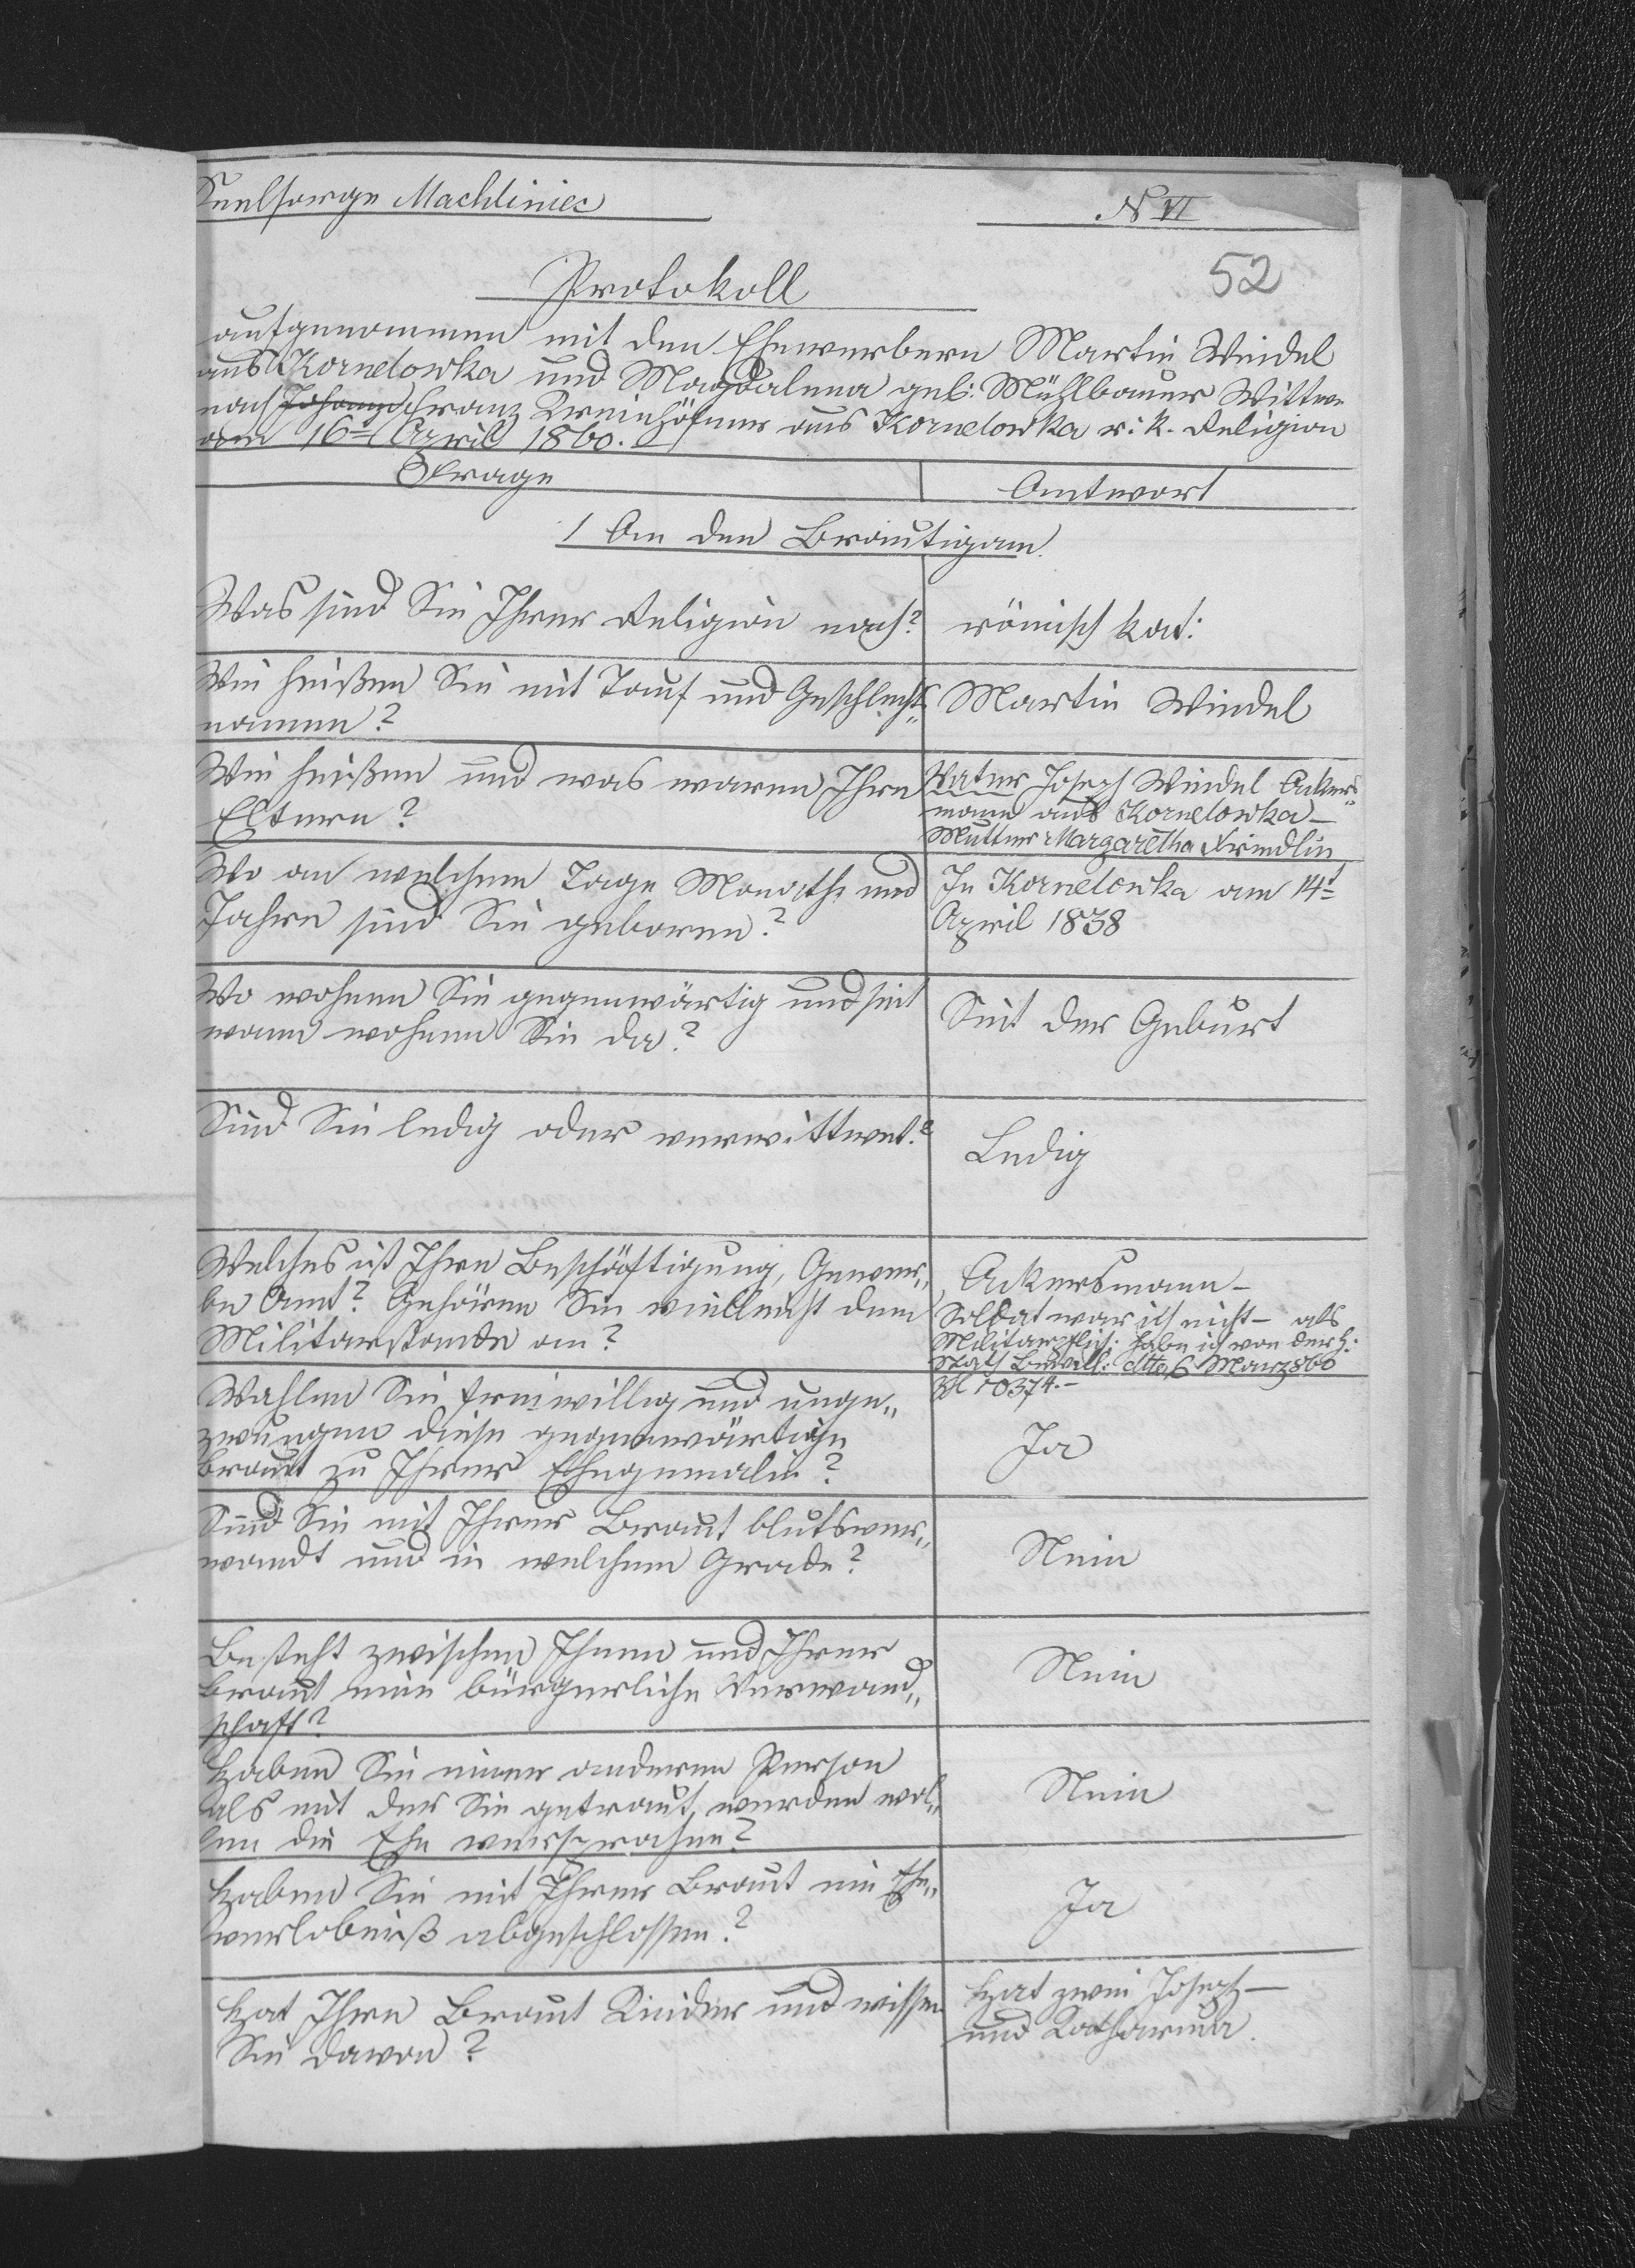 Seelsorge Machliniec
N VI
52
Protokoll
aufgenommen mit den Ehewerbern Martin Weidel
aus Kornelowka und Magdalena geb: Mühlbauer Wittwe
nach Johann Franz Kreinhöfner aus Kornelowka r: k. Religion
am 16t April 1860.
Frage
Antwort
1 An den Brautigam.
Was sind Sie Ihrer Religion nach?
römisch kat:
Wie heißen Sie mit Tauf und Geschlechts„
namen?
Martin Weidel
Wie heißen und was waren Ihre
Eltern?
Vater Joseph Weidel Ackers„
mann aus Kornelowka –
Mutter Margaretha Friedlin
Wo an welchem Tage Monaths und
Jahre sind Sie geboren?
In Kornelowka am 14t
April 1838
Wo wohnen Sie gegenwärtig und seit
wann wohnen Sie da?
Seit der Geburt
Sind Sie ledig oder verwittwet?
Ledig
Welches ist Ihre Beschäftigung, Gewer„
be Amt? Gehören Sie vielleicht dem
Militarstande an?
Ackersmann –
Soldat war ich nicht – als
Militarpflich: habe ich von der h:
Stath Bewill: dtto 6 Marz 860
Zl 10374.–
Wahlen Sie freiwillig und unge„
zwungen diese gegenwärtige
Braut zu Ihrer Ehegemalin?
Ja
Sind Sie mit Ihrer Braut blutsver„
wandt und in welchem Grade?
Nein
Besteht zwischen Ihnen und Ihrer
Braut eine bürgerliche Verwand„
schaft?
Nein
Haben Sie einer anderen Person
als mit der Sie getraut werden wol„
len die Ehe versprochen?
Nein
Haben Sie mit Ihrer Braut ein Ehe„
verlobniß abgeschlossen?
Ja
Hat Ihre Braut Kinder und wissen
Sie davon?
Hat zwei Joseph –
und Katharina.